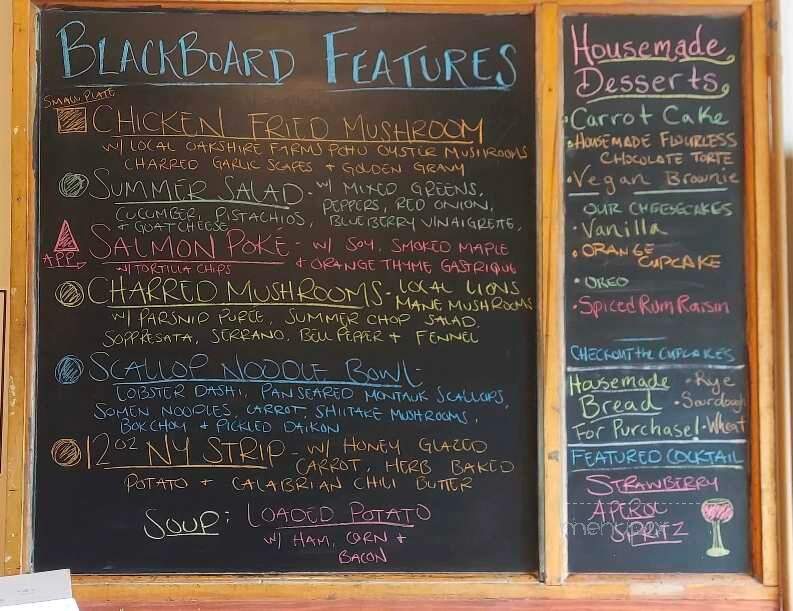 BLACKBOARD FEATURES
SMALL PLATE
CHICKEN FRIED MUSHROOM
W/ LOCAL OAKSHIRE FARMS POHO OYSTER MUSHROOMS
CHARRED GARLIC SCAPES + GOLDEN GRAVY
SUMMER SALAD - W/ MIXED GREENS,
PEPPERS, RED ONION,
CUCUMBER, PISTACHIOS, BLUEBERRY VINAIGRETTE,
+ GOAT CHEESE
SALMON POKÉ - W/ SOY, SMOKED MAPLE
APP.
W/ TORTILLA CHIPS + ORANGE THYME GASTRIQUE
CHARRED MUSHROOMS - LOCAL LIONS
MANE MUSHROOMS
W/ PARSNIP PUREE, SUMMER CHOP SALAD,
SOPPRESATA, SERRANO, BELL PEPPER + FENNEL
SCALLOP NOODLE BOWL -
LOBSTER DASHI, PAN SEARED MONTAUK SCALLOPS,
SOMEN NOODLES, CARROT, SHIITAKE MUSHROOMS,
BOK CHOY + PICKLED DAIKON
12 OZ NY STRIP - W/ HONEY GLAZED
CARROT, HERB BAKED
POTATO + CALABRIAN CHILI BUTTER
SOUP: LOADED POTATO
W/ HAM, CORN +
BACON
Housemade
Desserts
• Carrot Cake
• HOUSEMADE FLOURLESS
CHOCOLATE TORTE
• Vegan Brownie
OUR CHEESECAKES
• Vanilla
• ORANGE
CUPCAKE
• OREO
• Spiced Rum Raisin
CHECKOUT the CUPCAKES
Housemade • Rye
Bread • Sourdough
For Purchase! • Wheat
FEATURED COCKTAIL
STRAWBERRY
APEROL
SPRITZ